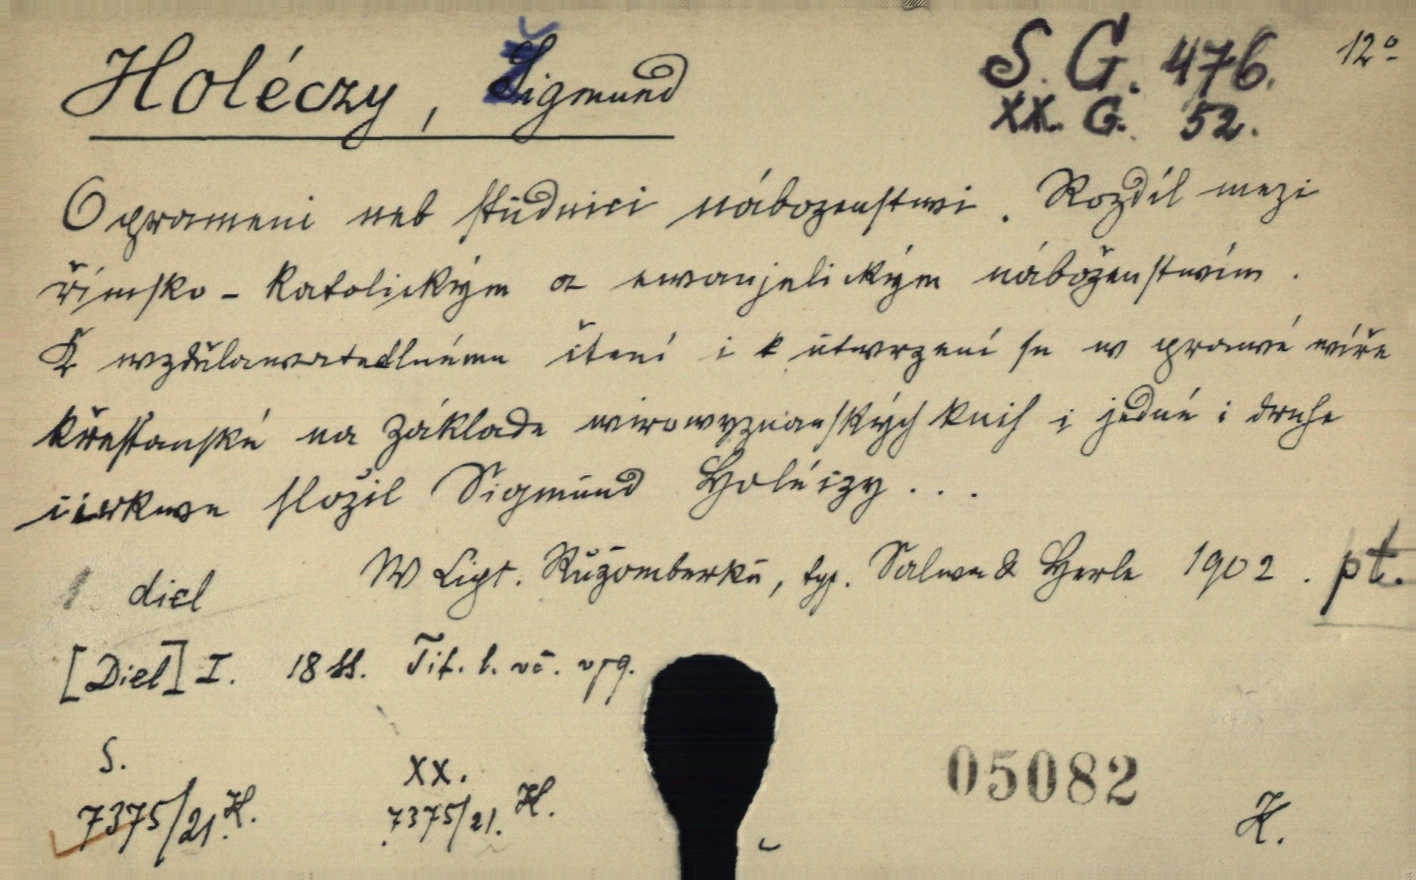 Holéczy, Žigmund
S. G. 476. 12°
XX. G. 52.
O prameni neb studnici nábozenstwi. Rozdíl mezi
římsko-katolickým a ewanjelickým náboženstwím.
K wzdělawatedlnému čtení i k utwrzení se w prawé wíře
křesťanské na základe wirowyznanských knih i jedné i druhe
cirkwe složil Sigmund Holéczy...
W Lipt. Ružomberku, typ. Salwa & Herle 1902. pt.
diel
[Diel] I. 18 ss. Tit. l.
S.
7375/21. H.
XX.
7375/21. H.
05082
H.